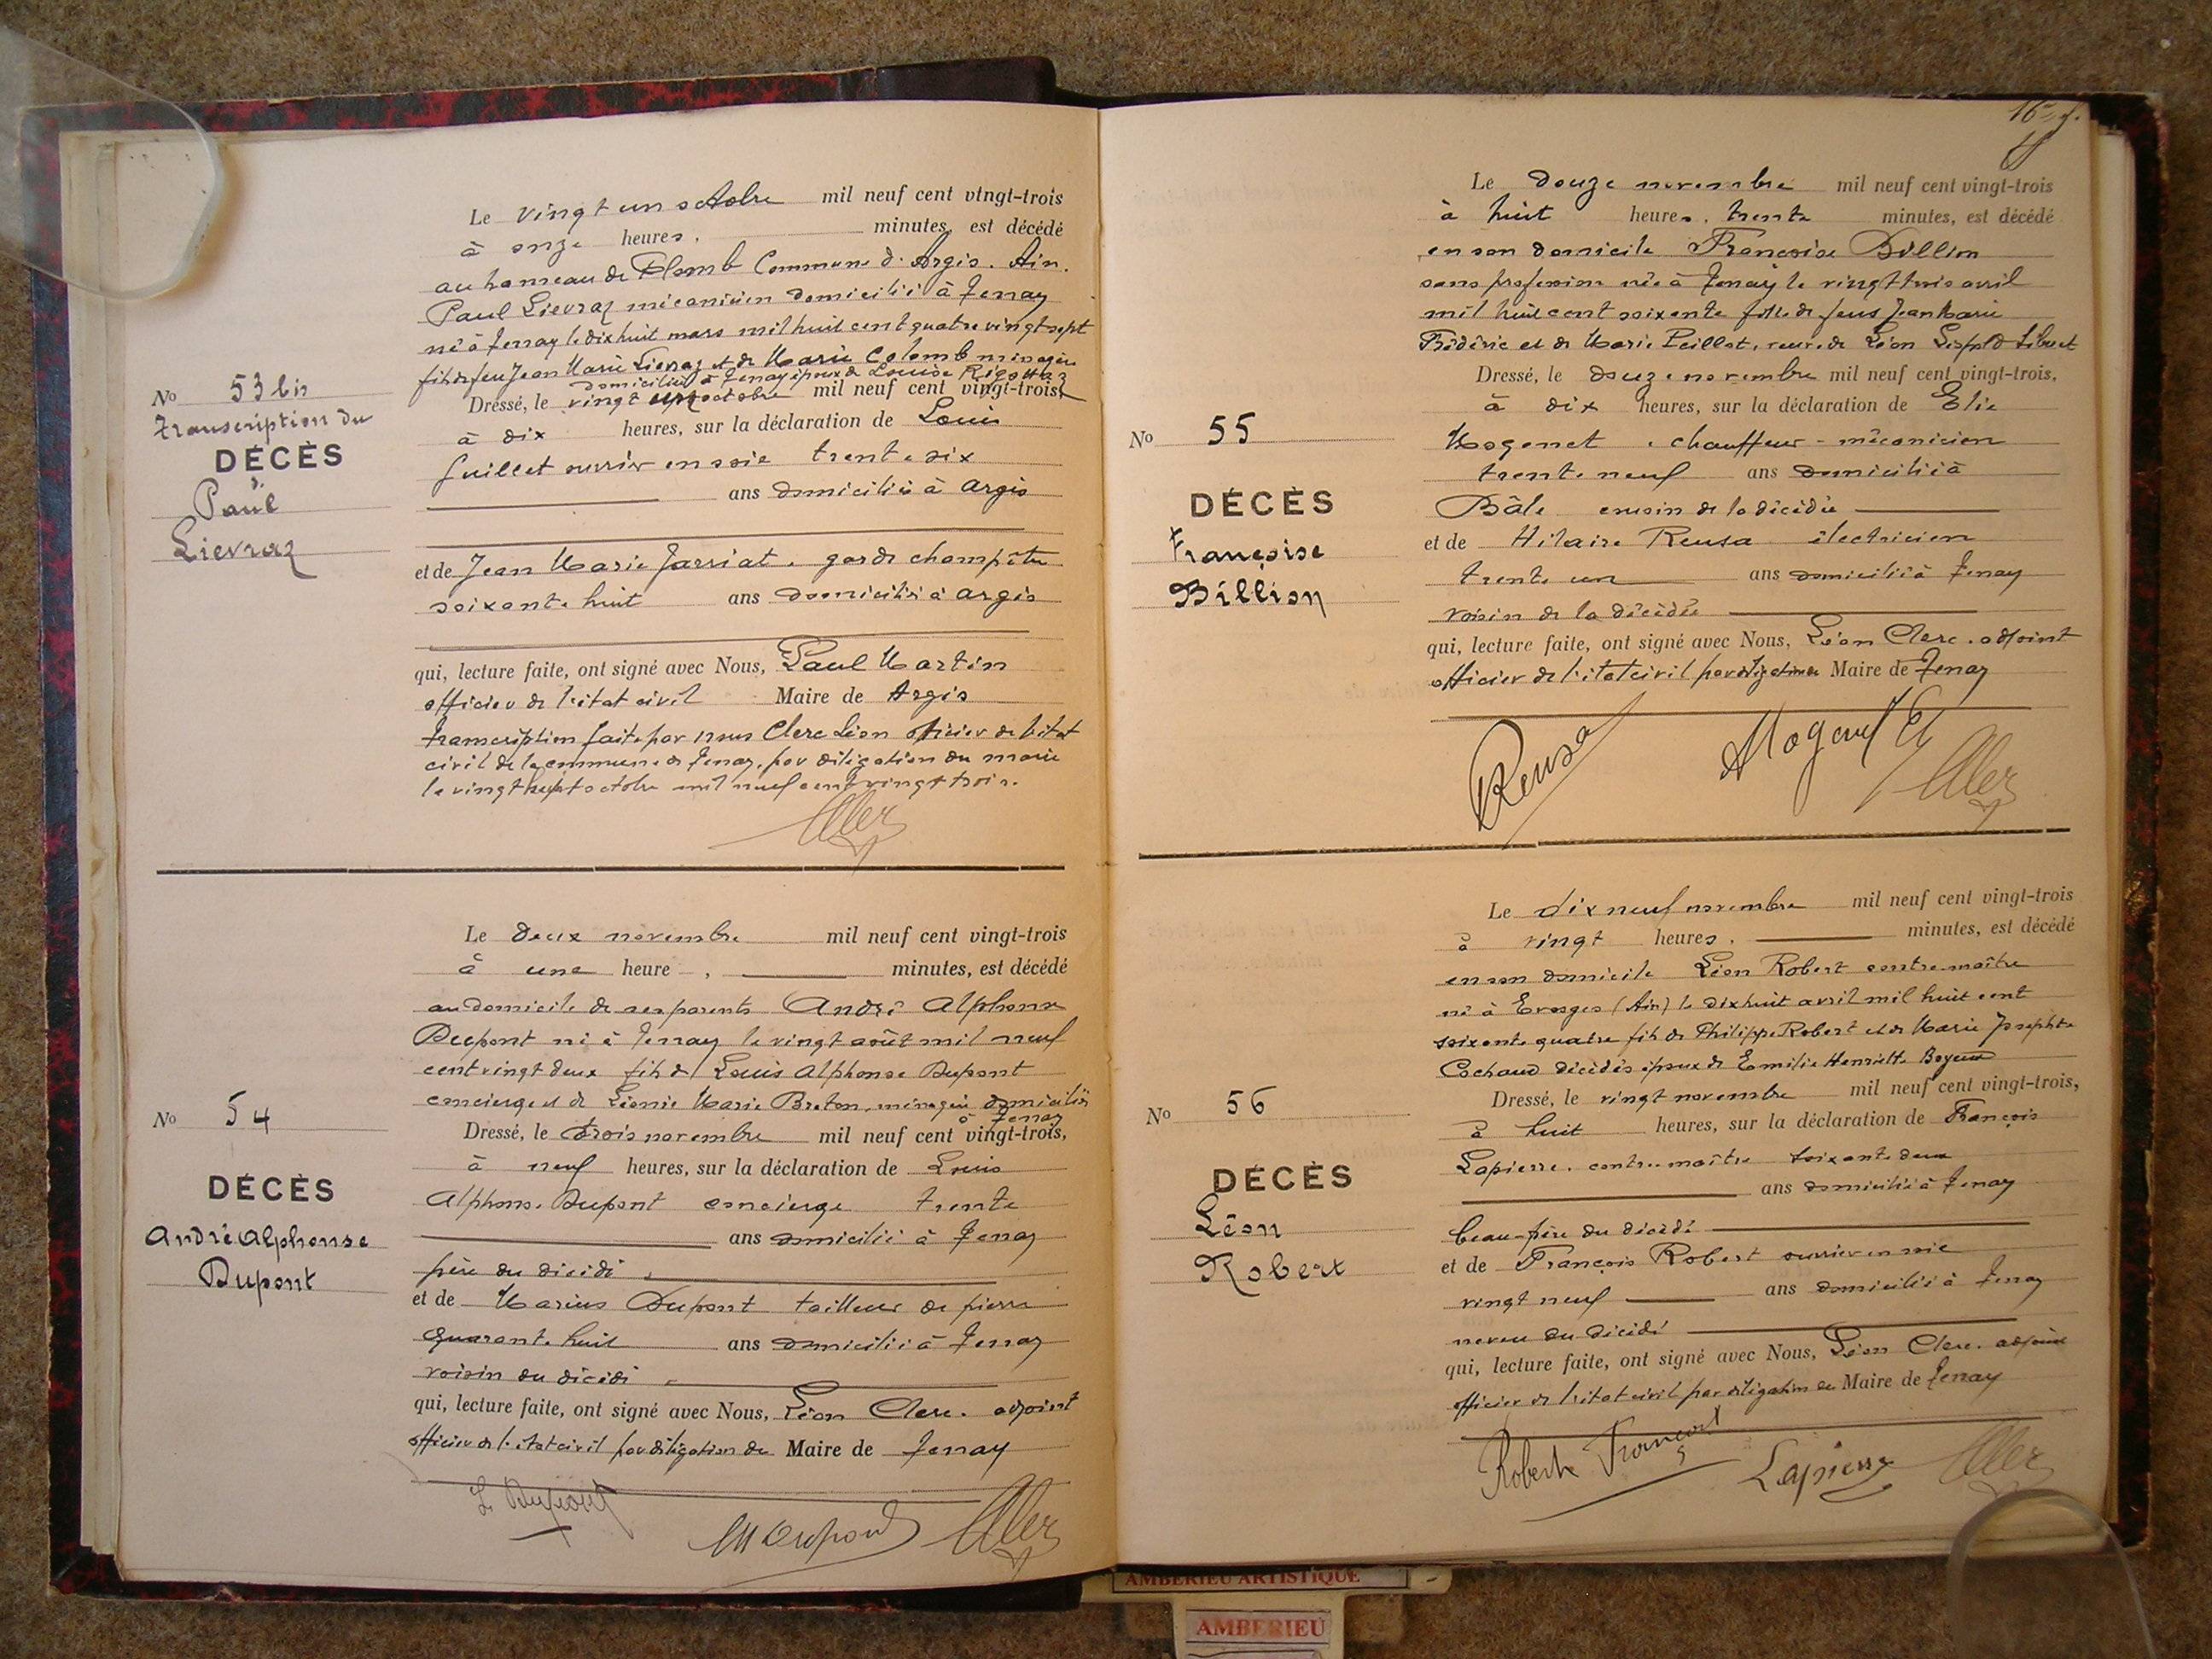 No 53 bis
Transcription du
DÉCÈS
d.
Paul
Lievraz
Le vingt un octobre mil neuf cent vingt-trois
à onze heures, minutes, est décédé
au hameau de Plomb Commune d'Argis. Ain.
Paul Lievraz mécanicien domicilié à Tenay
né à Tenay le dix huit mars mil huit cent quatre vingt sept
fils de feu Jean Marie Lievraz et de Marie Colomb ménagère
domiciliée à Tenay époux de Louise Rigottaz
Dressé, le vingt octobre mil neuf cent vingt-trois,
à dix heures, sur la déclaration de Louis
Juillet ouvrier en soie trente six
ans domicilié à Argis
et de Jean Marie Jarriat. garde champêtre
soixante huit ans domicilié à Argis
qui, lecture faite, ont signé avec Nous, Paul Martin
officier de l'état civil Maire de Argis
transcription faite par nous Clerc Léon officier de l'état
civil de la commune de Tenay, par délégation du maire
le vingt sept octobre mil neuf cent vingt trois.
No 54
DÉCÈS
André Alphonse
Dupont
Le deux novembre mil neuf cent vingt-trois
à une heure, minutes, est décédé
au domicile de ses parents André Alphonse
Dupont né à Tenay le vingt août mil neuf
cent vingt deux fils de Louis Alphonse Dupont
concierge et de Léonie Marie Breton, ménagère domiciliés
à Tenay
Dressé, le trois novembre mil neuf cent vingt-trois,
à neuf heures, sur la déclaration de Louis
Alphonse Dupont concierge trente
ans domicilié à Tenay
père du décédé
et de Marius Dupont tailleur de pierre
quarante huit ans domicilié à Tenay
voisin du décédé
qui, lecture faite, ont signé avec Nous, Léon Clerc. adjoint
officier de l'état civil par délégation du Maire de Tenay
L. Dupont
M Dupont
16e f.
No 55
DÉCÈS
Françoise
Billion
Le douze novembre mil neuf cent vingt-trois
à huit heures, trente minutes, est décédé
en son domicile Françoise Billion
sans profession née à Tenay le vingt trois avril
mil huit cent soixante fille de feus Jean Marie
Frédéric et de Marie Peillot, veuve de Léon Léopold
Dressé, le douze novembre mil neuf cent vingt-trois,
à dix heures, sur la déclaration de Elie
Mogenet, chauffeur-mécanicien
trente neuf ans domicilié à
Bâle cousin de la décédée
et de Hilaire Reusa électricien
trente un ans domicilié à Tenay
voisin de la décédée
qui, lecture faite, ont signé avec Nous, Léon Clerc. adjoint
officier de l'état civil par délégation du Maire de Tenay
Reusa
Mogenet E
No 56
DÉCÈS
Léon
Robert
Le dix neuf novembre mil neuf cent vingt-trois
à vingt heures, minutes, est décédé
en son domicile Léon Robert contremaître
né à Evosges (Ain) le dix huit avril mil huit cent
soixante quatre fils de Philippe Robert et de Marie Josephte
Cochaud décédés époux de Emilie Henriette
Dressé, le vingt novembre mil neuf cent vingt-trois,
à huit heures, sur la déclaration de François
Lapierre. contremaître soixante deux
ans domicilié à Tenay
beau-frère du décédé
et de François Robert ouvrier en soie
vingt neuf ans domicilié à Tenay
neveu du décédé
qui, lecture faite, ont signé avec Nous, Léon Clerc. adjoint
officier de l'état civil par délégation du Maire de Tenay
Robert François
Lapierre
AMBERIEU ARTISTIQUE
AMBERIEU